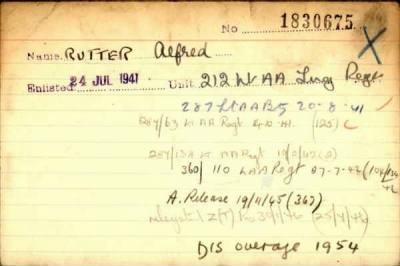 No 1830675
Name RUTTER Alfred
Enlisted 24 JUL 1941 Unit 212 Lt AA Trng Regt
287 Lt AA Bty 20-8-41
287/63 Lt AA Regt 41. (125)
Lt AA Regt
360/110 LAA Regt 27-7-42 (
A. Release 19/11/45 (367)
Z(T) Res 30/1/46 (25/4/46)
DIS overage 1954